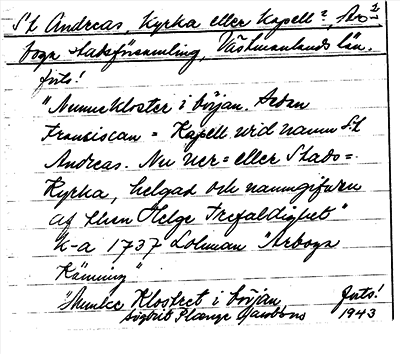 S:t Andreas, Kyrka eller Kapell?, Ar-
boga stadsförsamling, Västmanlands län.
foto!
"Nunnekloster i början. Sedan
Franciscan = Kapell wid namn S:t
Andreas. Nu ner = eller Stads =
Kyrka, helgad och namngifven
af then Helge Trefaldighet"
K-a 1737 Lohman "Arboga
Känning"
"Munke Klostret i början foto!
Sigbrit Plænge Jacobsons 1943